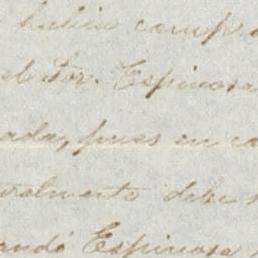 habia comp
el Sor. Espinosa
ada, pues en ca
ralmente debe
ando Espinosa